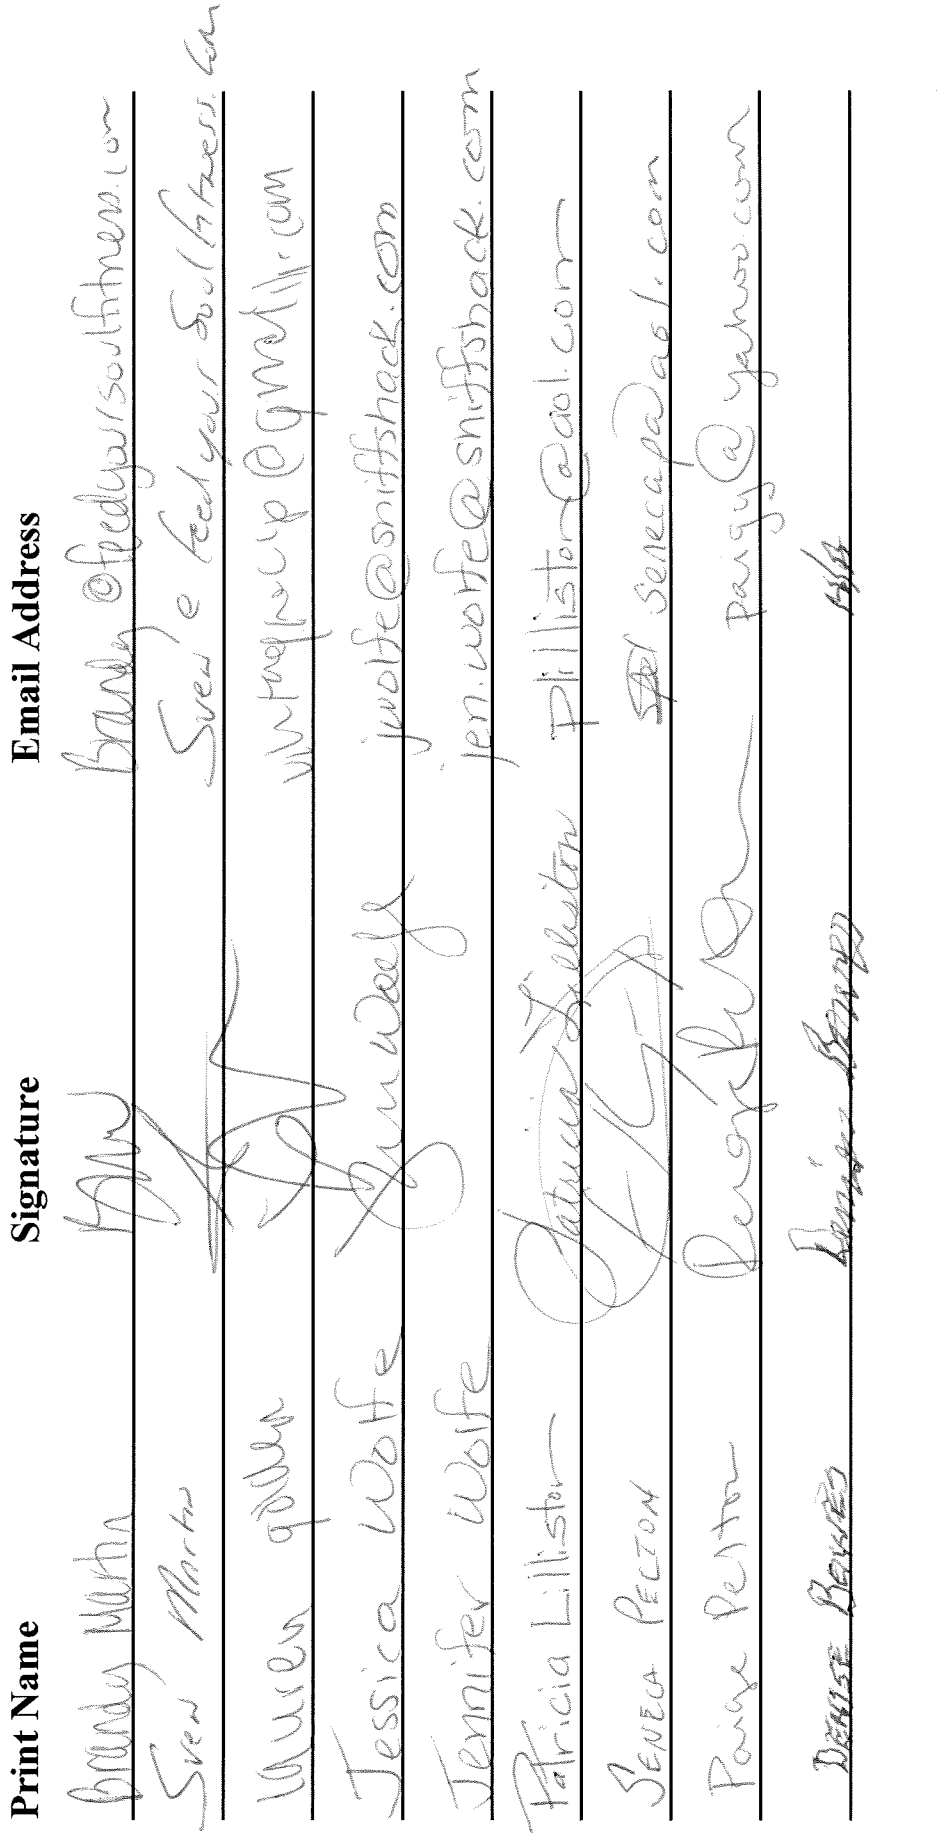 Print Name Signature Email Address
Brandy Martin Brandy@feedyoursoulfitness.com
Sven Martin Sven@feedyoursoulfitness.com
lauren
Jessica Wolfe Jess Wolfe jwolfe@sniffshack.com
Jennifer Wolfe jen.wolfe@sniffshack.com
Patricia Lilliston Patricia Lilliston plilliston@aol.com
SENECA PELTON senecapa@aol.com
Paige Pelton paigy@yahoo.com
DENISE Denise